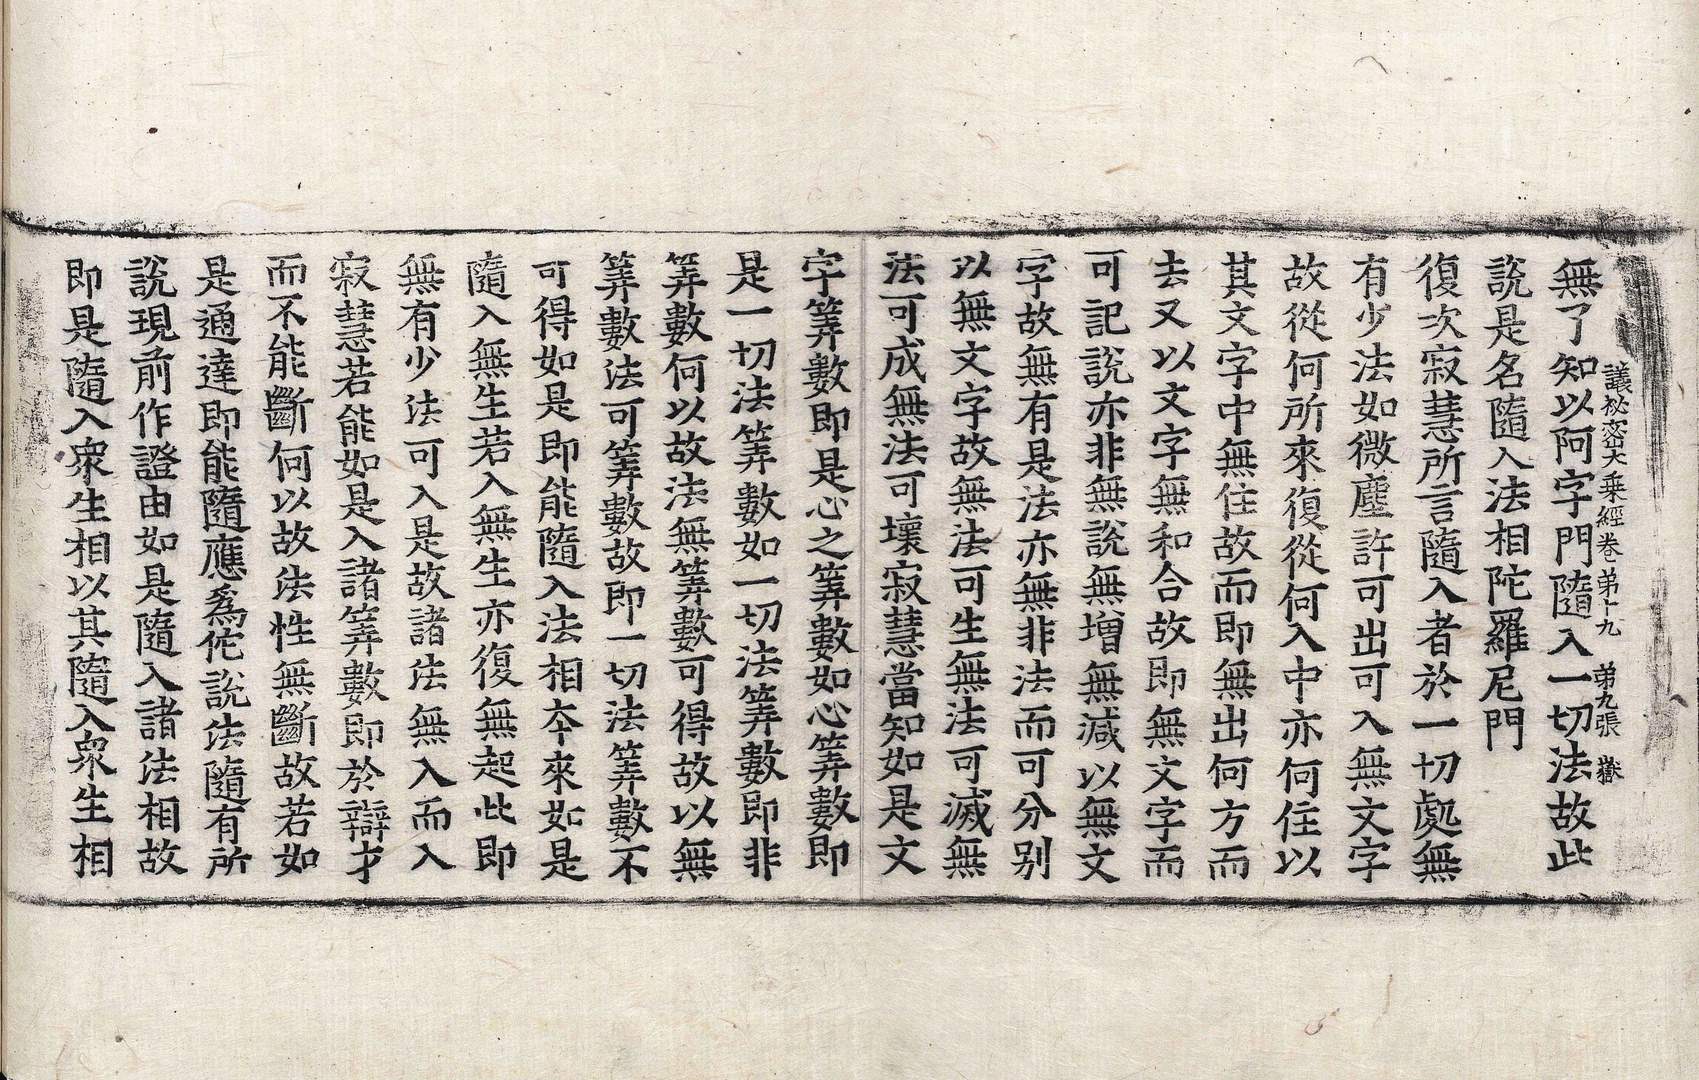 議秘密大乘經卷第十九 第九張 嶽
無了知以阿字門隨入一切法故此
說是名隨入法相陀羅尼門
復次寂慧所言隨入者於一切處無
有少法如微塵許可出可入無文字
故從何所來復從何入中亦何住以
其文字中無住故而即無出何方而
去又以文字無和合故即無文字而
可記說亦非無說無增無減以無文
字故無有是法亦無非法而可分别
以無文字故無法可生無法可滅無
法可成無法可壞寂慧當知如是文
字筭數即是心之筭數如心筭數即
是一切法筭數如一切法筭數即非
筭數何以故法無筭數可得故以無
筭數法可筭數故即一切法筭數不
可得如是即能隨入法相夲來如是
隨入無生若入無生亦復無起此即
無有少法可入是故諸法無入而入
寂慧若能如是入諸筭數即於辯才
而不能斷何以故法性無斷故若如
是通達即能隨應爲佗說法隨有所
說現前作證由如是隨入諸法相故
即是隨入衆生相以其隨入衆生相